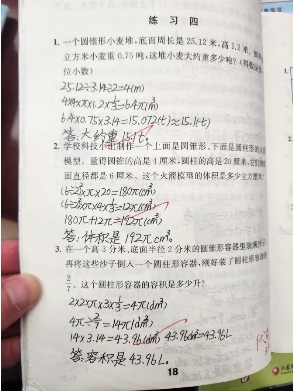 练习四
1. 一个圆锥形小麦堆,底面周长是25.12米,高1.2米,
立方米小麦重0.75吨,这堆小麦大约重多少吨?(得
位小数)
25.12÷3.14÷2=4(m)
4×4×π×1.2×⅓=6.4π(m³)
6.4×0.75×3.14=15.072(t)≈15.1(t)
答:大约重15.1t。
2. 学校科技小组制作一个上面是圆锥形、下面是圆柱形的火箭
模型。量得圆锥的高是4厘米,圆柱的高是20厘米,它们的
面直径都是6厘米。这个火箭模型的体积是多少立方厘米?
(6÷2)²×π×20=180π(cm³)
(6÷2)²×π×4×⅓=12π(cm³)
180π+12π=192π(cm³)
答:体积是192πcm³。
3. 在一个高3分米、底面半径2分米的圆锥形容器里装满沙子,
再将这些沙子倒入一个圆柱形容器,刚好装了圆柱形容器的
2/7。这个圆柱形容器的容积是多少升?
2×2×π×3×⅓=4π(dm³)
4π÷2/7=14π(dm³)
14×3.14=43.96(dm³) 43.96dm³=43.96L
答:容积是43.96L。
18